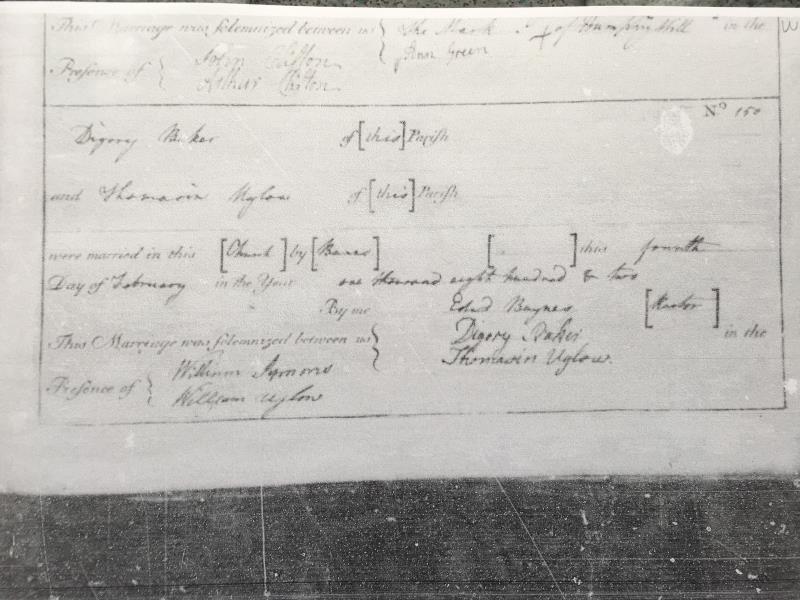 This Marriage was solemnized between us { The Mark + of Humphry Hill in the
Ann Green
Presence of { John Clifton
Arthur Clifton
No 150
Digory Baker of [this] Parish
and Thomasin Uglow of [this] Parish
were married in this [Church] by [Banns] [ ] this fourth
Day of February in the Year one thousand eight hundred & two
By me Edwd Baynes [Rector]
This Marriage was solemnized between us { Digory Baker in the
Thomasin Uglow.
Presence of { William Symons
William Uglow